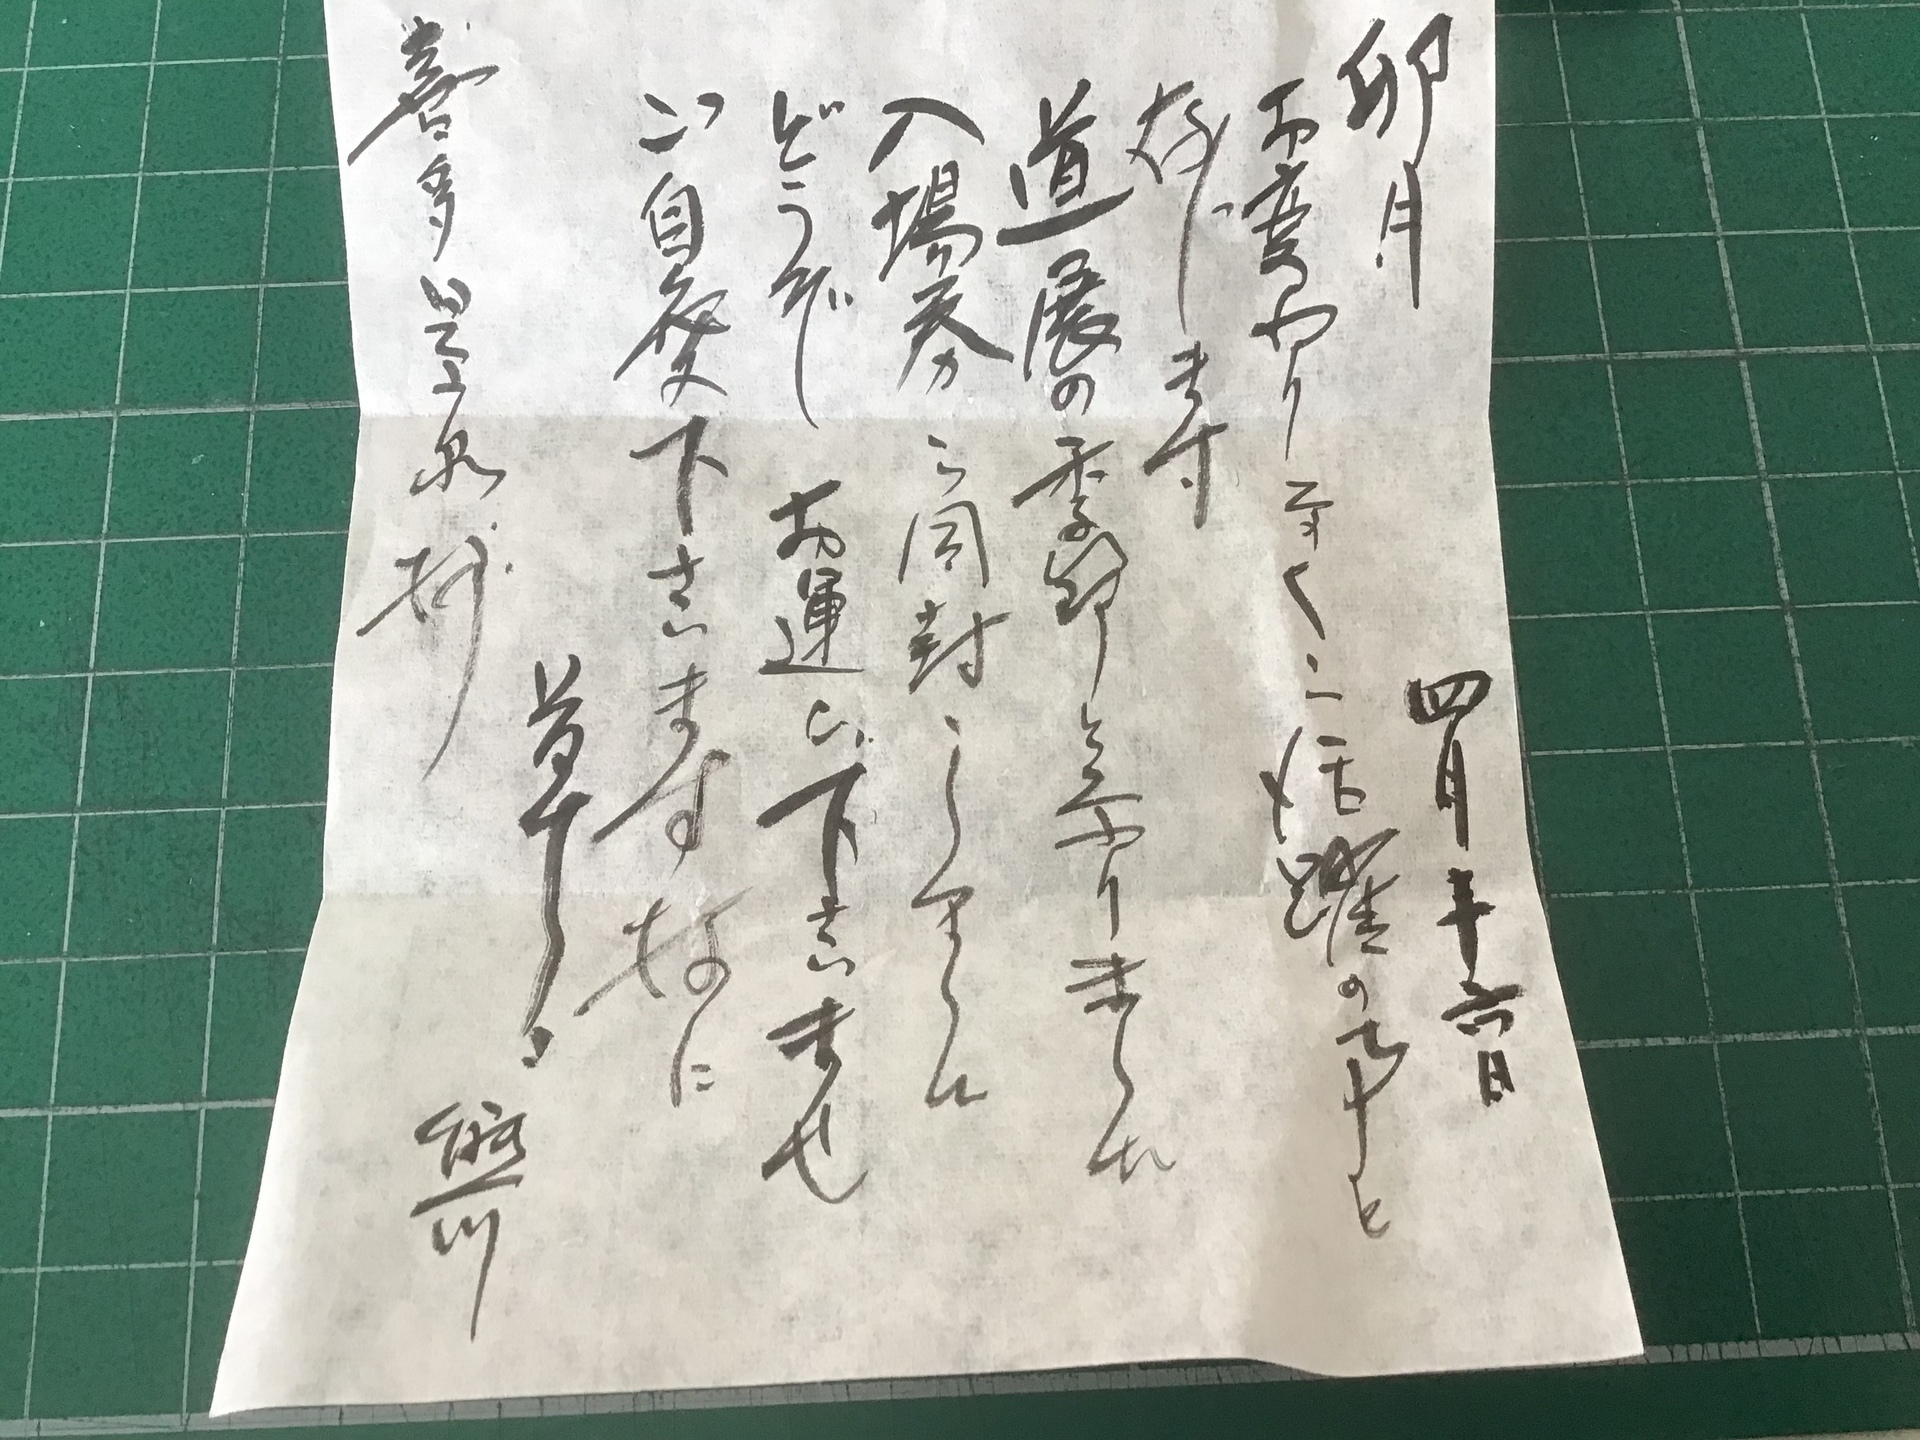 卯月
四月十六日
お変わりなくご活躍の事と
存じます
道展の季節となりました
入場券ご同封しました
どうぞ お運び下さいませ
ご自愛下さいます様に
草々
盤川
喜多 泉様